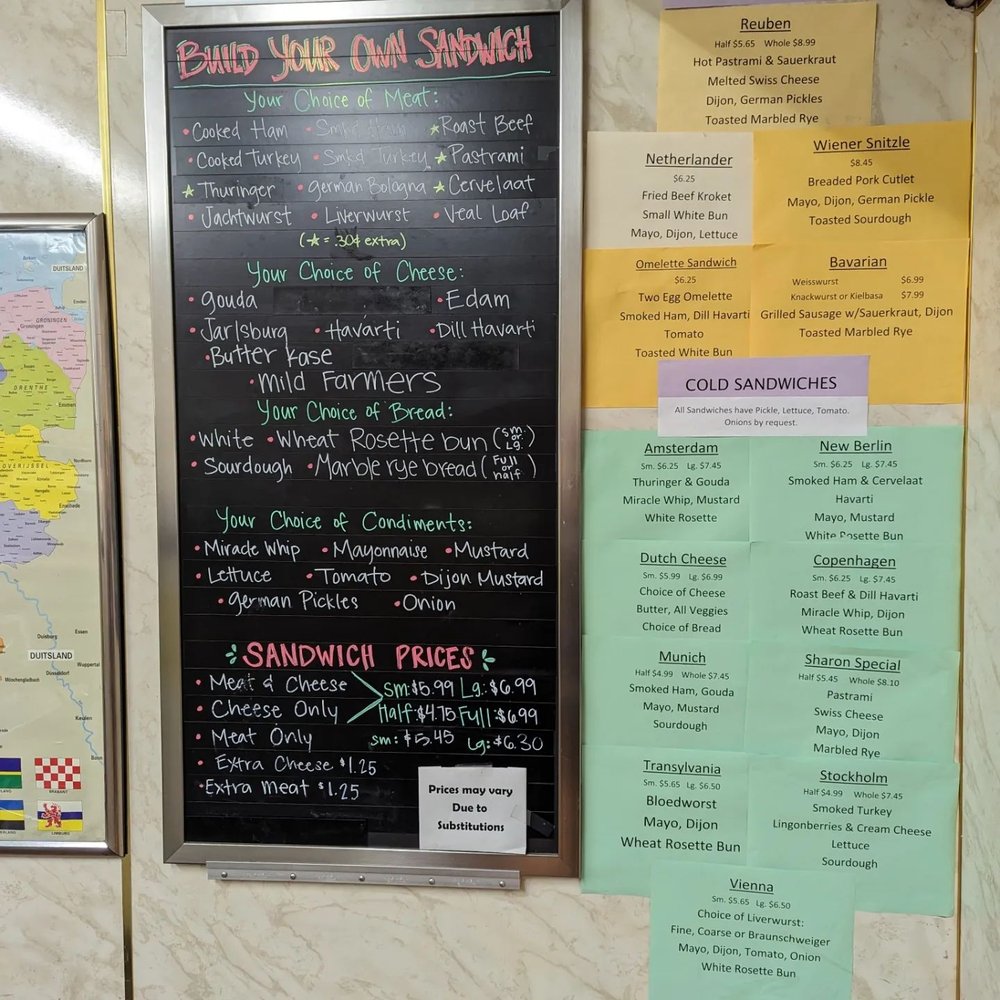 BUILD YOUR OWN SANDWICH
Your Choice of Meat:
• Cooked Ham • Smkd Ham ★ Roast Beef
• Cooked Turkey • Smkd Turkey ★ Pastrami
★ Thuringer • german Bologna ★ Cervelaat
• Jachtwurst • Liverwurst • Veal Loaf
(★ = .30¢ extra)
Your Choice of Cheese:
• gouda • Edam
• Jarlsburg • Havarti • Dill Havarti
• Butter Kase
• mild Farmers
Your Choice of Bread:
• White • Wheat Rosette bun (sm. or Lg.)
• Sourdough • Marble rye bread (Full or half)
Your Choice of Condiments:
• Miracle Whip • Mayonnaise • Mustard
• Lettuce • Tomato • Dijon Mustard
• German Pickles • Onion
SANDWICH PRICES
• Meat & Cheese sm: $5.99 Lg.: $6.99
• Cheese Only Half: $4.75 Full: $6.99
• Meat Only sm: $5.45 Lg: $6.30
• Extra Cheese $1.25
• Extra meat $1.25
Prices may vary
Due to
Substitutions
Reuben
Half $5.65 Whole $8.99
Hot Pastrami & Sauerkraut
Melted Swiss Cheese
Dijon, German Pickles
Toasted Marbled Rye
Netherlander
$6.25
Fried Beef Kroket
Small White Bun
Mayo, Dijon, Lettuce
Wiener Snitzle
$8.45
Breaded Pork Cutlet
Mayo, Dijon, German Pickle
Toasted Sourdough
Omelette Sandwich
$6.25
Two Egg Omelette
Smoked Ham, Dill Havarti
Tomato
Toasted White Bun
Bavarian
Weisswurst $6.99
Knackwurst or Kielbasa $7.99
Grilled Sausage w/Sauerkraut, Dijon
Toasted Marbled Rye
COLD SANDWICHES
All Sandwiches have Pickle, Lettuce, Tomato.
Onions by request.
Amsterdam
Sm. $6.25 Lg. $7.45
Thuringer & Gouda
Miracle Whip, Mustard
White Rosette
New Berlin
Sm. $6.25 Lg. $7.45
Smoked Ham & Cervelaat
Havarti
Mayo, Mustard
White Rosette Bun
Dutch Cheese
Sm. $5.99 Lg. $6.99
Choice of Cheese
Butter, All Veggies
Choice of Bread
Copenhagen
Sm. $6.25 Lg. $7.45
Roast Beef & Dill Havarti
Miracle Whip, Dijon
Wheat Rosette Bun
Munich
Half $4.99 Whole $7.45
Smoked Ham, Gouda
Mayo, Mustard
Sourdough
Sharon Special
Half $5.45 Whole $8.10
Pastrami
Swiss Cheese
Mayo, Dijon
Marbled Rye
Transylvania
Sm. $5.65 Lg. $6.50
Bloedworst
Mayo, Dijon
Wheat Rosette Bun
Stockholm
Half $4.99 Whole $7.45
Smoked Turkey
Lingonberries & Cream Cheese
Lettuce
Sourdough
Vienna
Sm. $5.65 Lg. $6.50
Choice of Liverwurst:
Fine, Coarse or Braunschweiger
Mayo, Dijon, Tomato, Onion
White Rosette Bun
DUITSLAND
GRONINGEN
Groningen
DRENTHE
Emmen
OVERIJSSEL
Enschede
Duisburg
Essen
DUITSLAND
Wuppertal
Düsseldorf
Keulen
Bonn
BRABANT
LIMBURG